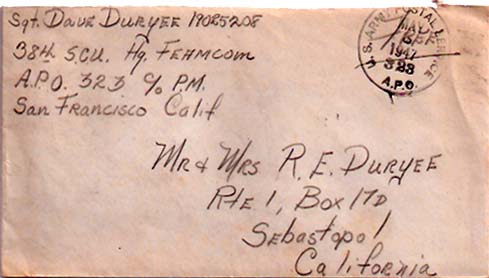 Sgt. Dave Duryee 19025208
38th S.C.U. Hq. FEHMCOM
A.P.O. 323 c/o P.M.
San Francisco Calif
U.S. ARMY POSTAL SERVICE
MAY
1947
323
A.P.O.
Mr & Mrs R. E. Duryee
Rte 1, Box 17D
Sebastopol
California